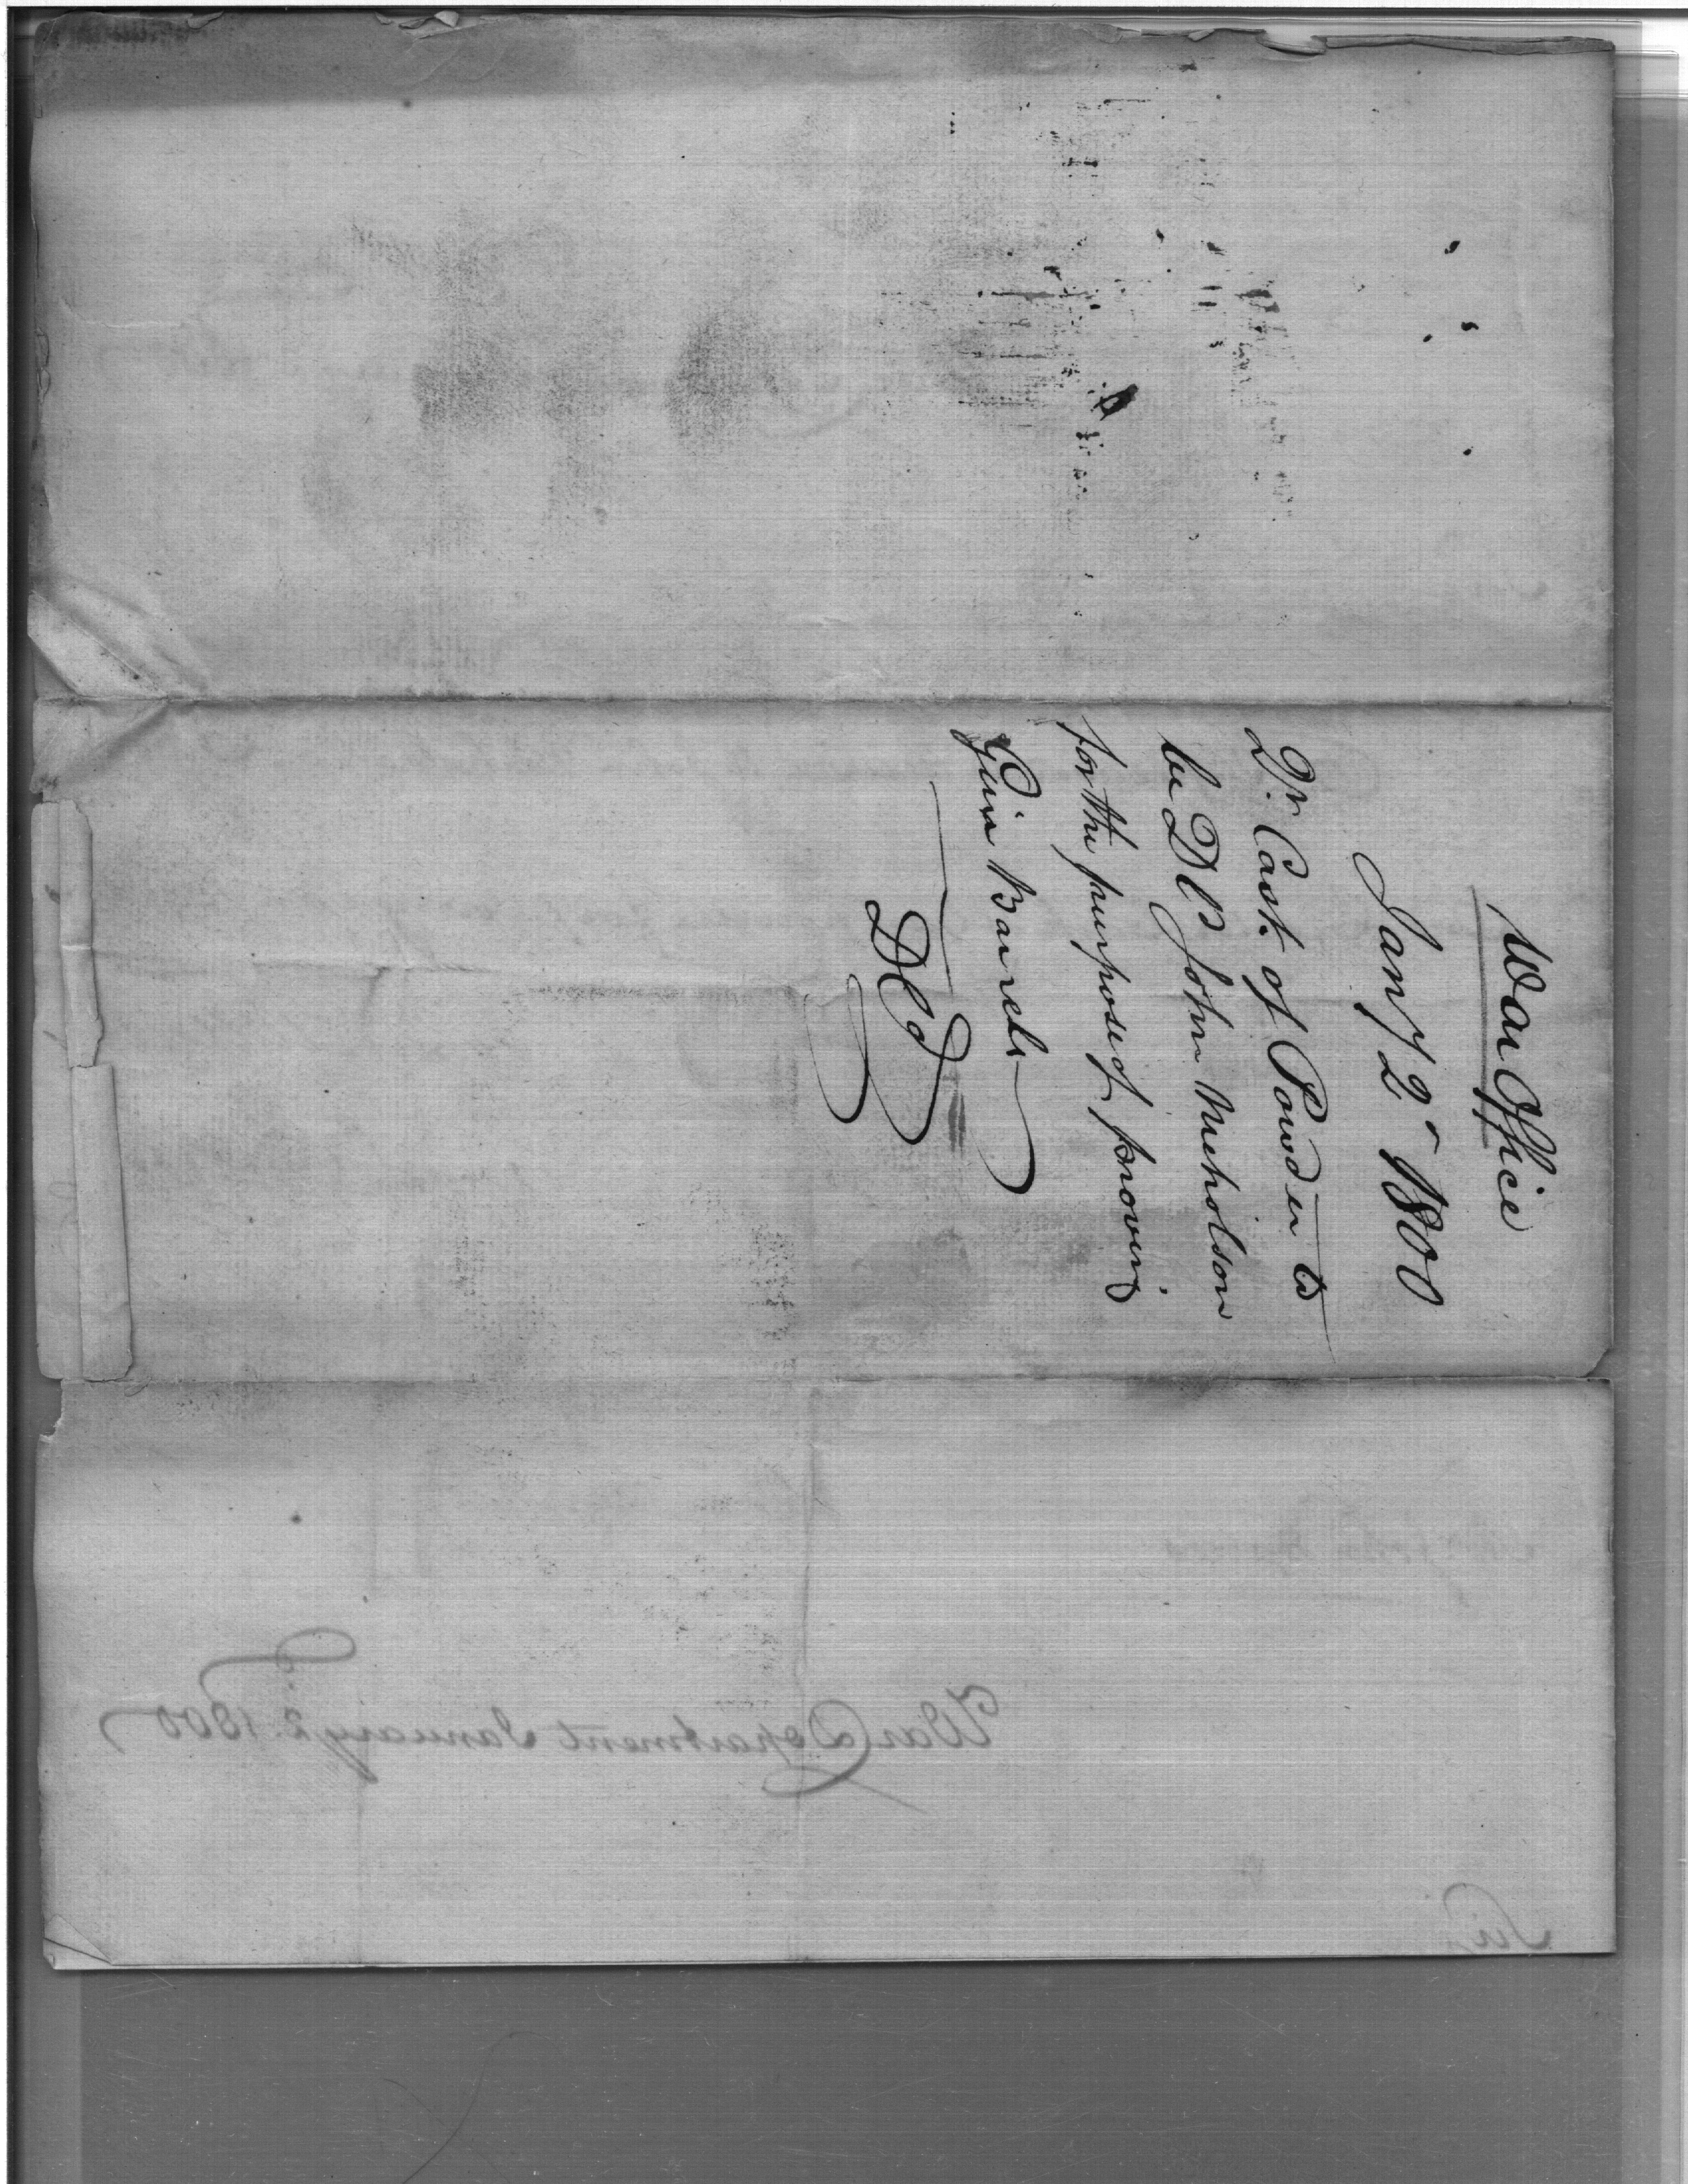 War Office
Jany 2d 1800
Qr Cask of Powder to
be DD John Nicholson
for the purpose of proving
Gun Barrels
DD
War Department January 2. 1800
Sir,